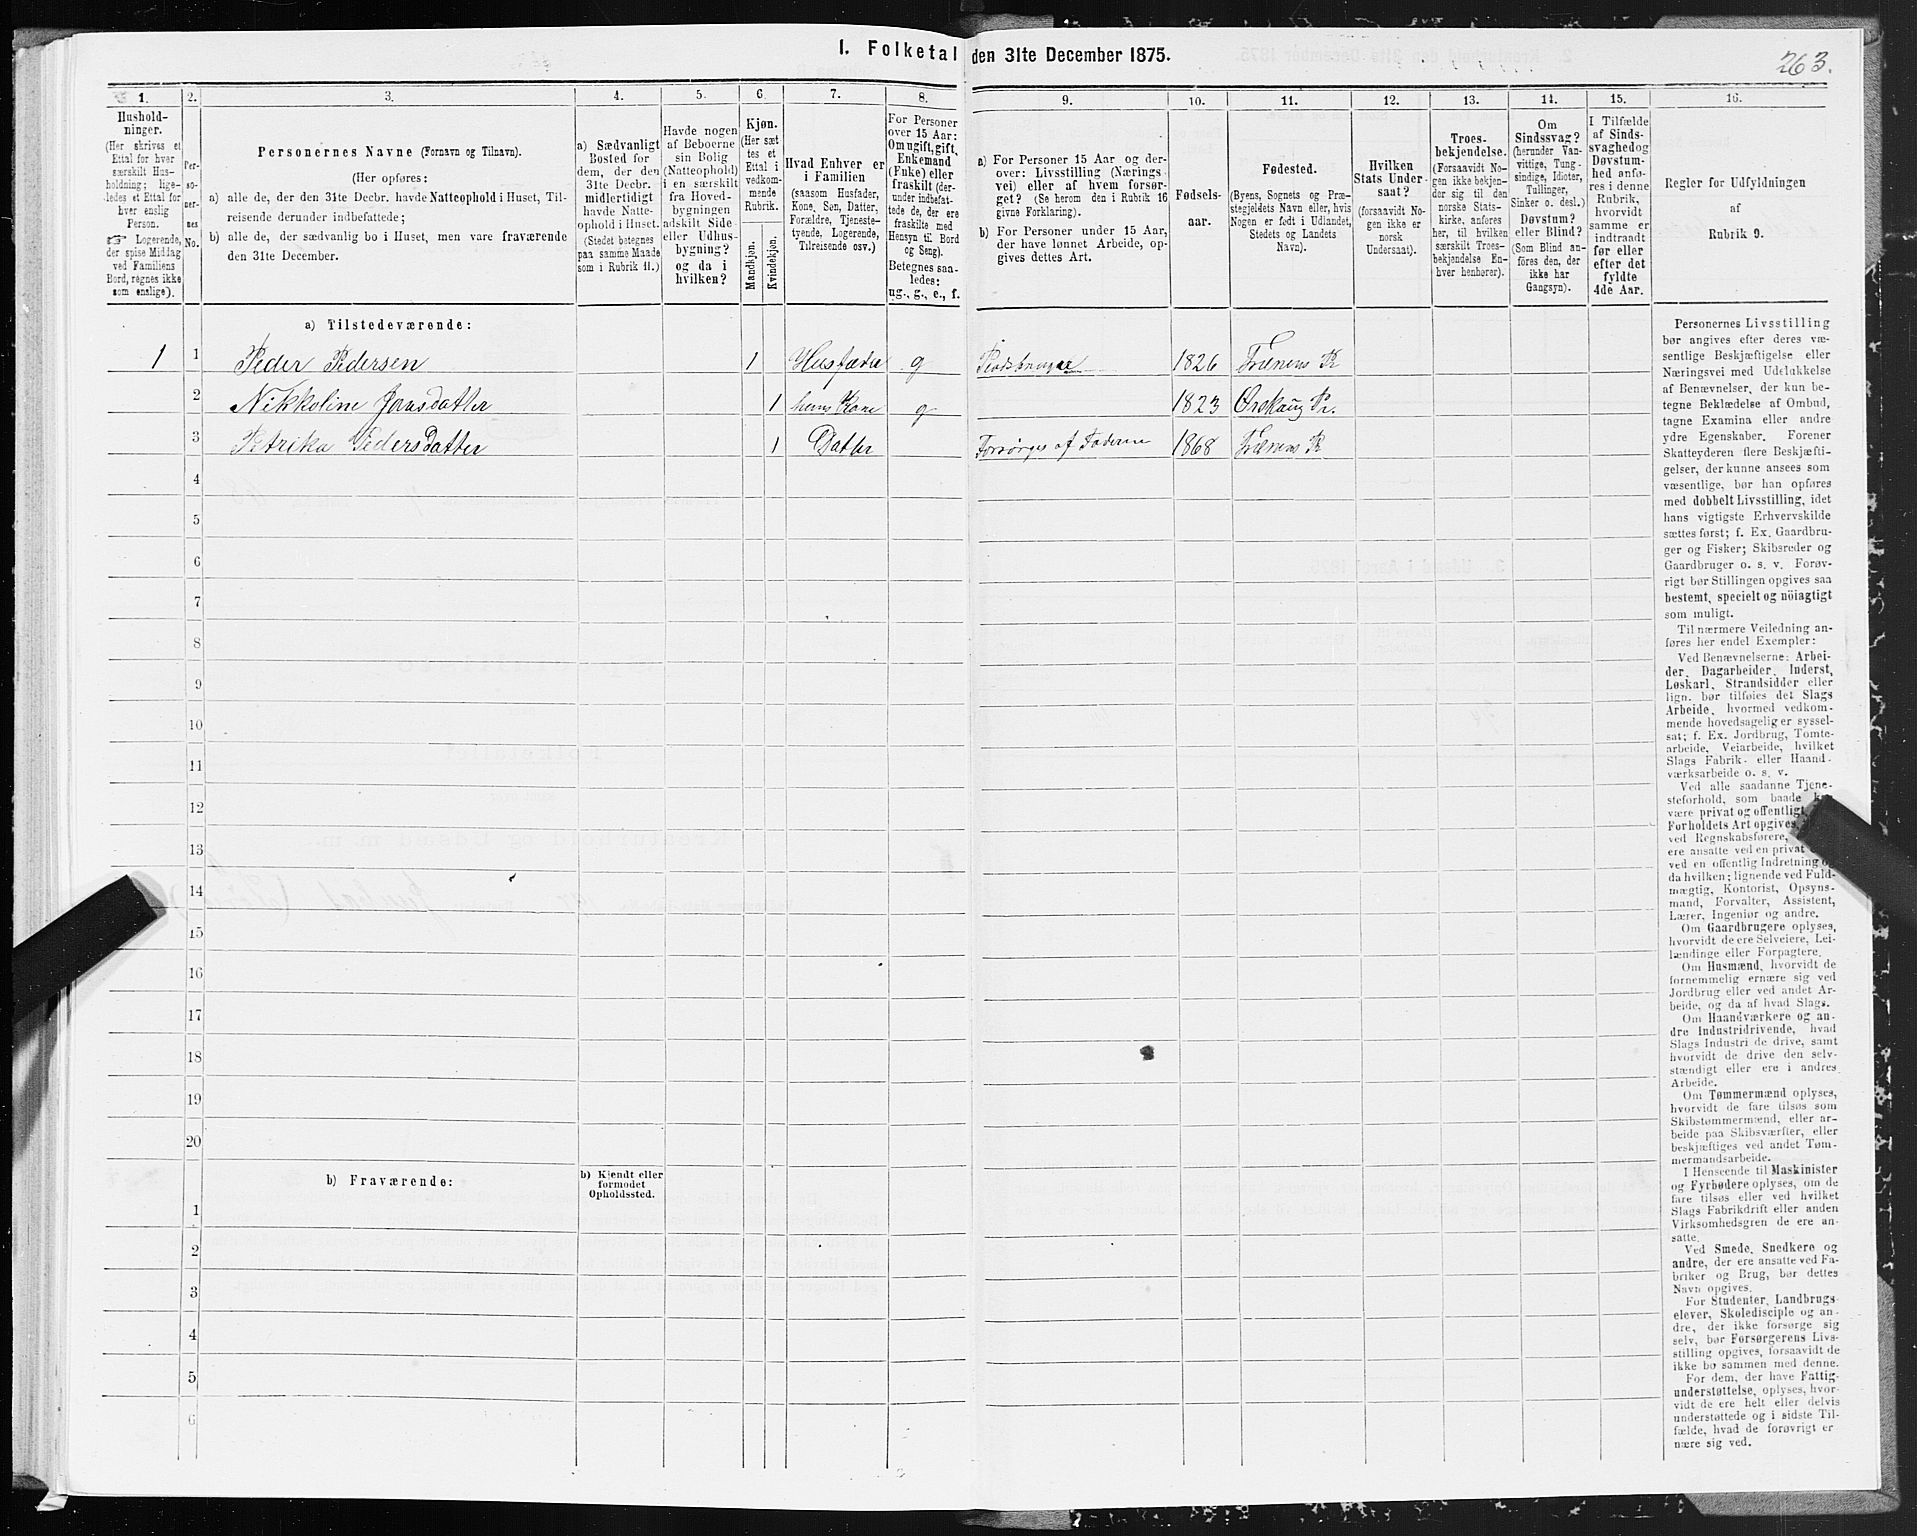 1. Folketal den 31te December 1875.
263.
1.
Hushold-
ninger.
(Her skrives et
Ettal for hver
særskilt Hus-
holdning; lige-
ledes et Ettal for
hver enslig
Person.
☞ Logerende,
der spise Middag
ved Familiens
Bord, regnes ikke
som enslige).
2.
Per-
so-
ner-
nes
No.
3.
Personernes Navne (Fornavn og Tilnavn).
(Her opføres:
a) alle de, der den 31te Decbr. havde Natteophold i Huset, Til-
reisende derunder indbefattede;
b) alle de, der sædvanlig bo i Huset, men vare fraværende
den 31te December.
4.
a) Sædvanligt
Bosted for
dem, der den
31te Decbr.
midlertidigt
havde Natte-
ophold i Huset.
(Stedet betegnes
paa samme Maade
som i Rubrik 11.)
5.
Havde nogen
af Beboerne
sin Bolig
(Natteophold)
i en særskilt
fra Hoved-
bygningen
adskilt Side-
eller Udhus-
bygning?
og da i
hvilken?
6.
Kjøn.
(Her sæt
tes et
Ettal i
vedkom-
mende
Rubrik.
Mandkjøn.
Kvindekjøn.
7.
Hvad Enhver er
i Familien
(saasom Husfader,
Kone, Søn, Datter,
Forældre, Tjeneste-
tyende, Logerende,
Tilreisende osv.)
8.
For Personer
over 15 Aar:
Om ugift, gift,
Enkemand
(Enke) eller
fraskilt (der-
under indbefat-
tede de, der ere
fraskilte med
Hensyn til Bord
og Seng).
Betegnes saa-
ledes:
ug., g., e., f.
9.
a) For Personer 15 Aar og der-
over: Livsstilling (Nærings-
vei) eller af hvem forsør-
get? (Se herom den i Rubrik 16
givne Forklaring).
b) For Personer under 15 Aar,
der have lønnet Arbeide, op-
gives dettes Art.
10.
Fødsels-
aar.
11.
Fødested.
(Byens, Sognets og Præ-
stegjeldets Navn eller, hvis
Nogen er født i Udlandet,
Stedets og Landets
Navn).
12.
Hvilken
Stats Under-
saat?
(forsaavidt No-
gen ikke er
norsk
Undersaat).
13.
Troes-
bekjendelse.
(Forsaavidt No-
gen ikke bekjen-
der sig til den
norske Stats-
kirke, anføres
her, til hvilken
særskilt Troes-
bekjendelse En-
hver henhører).
14.
Om
Sindssvag?
(herunder Van-
vittige, Tung-
sindige, Idioter,
Tullinger,
Sinker o. desl.)
Døvstum?
eller Blind?
(Som Blind an-
føres den, der
ikke har
Gangsyn).
15.
I Tilfælde
af Sinds-
svaghed og
Døvstum-
hed anfø-
res i denne
Rubrik,
hvorvidt
samme er
indtraadt
før eller
efter det
fyldte
4de Aar.
16.
Regler for Udfyldningen
af
Rubrik 9.
a) Tilstedeværende:
1 1 Peder Pedersen 1 Husfader g 1826 P
2 Nikkoline Jonsdatter 1 hans Kone g 1823 Ørskaug Pr.
3 Petrika Pedersdatter 1 Datter Forsørges af Faderen 1868 P
4
5
6
7
8
9
10
11
12
13
14
15
16
17
18
19
20
b) Fraværende:
b) Kjendt eller
formodet
Opholdssted.
1
2
3
4
5
6
Personernes Livsstilling
bør angives efter deres væ-
sentlige Beskjæftigelse eller
Næringsvei med Udelukkelse
af Benævnelser, der kun be-
tegne Beklædelse af Ombud,
tagne Examina eller andre
ydre Egenskaber. Forener
Skatteyderen flere Beskjæfti-
gelser, der kunne ansees som
væsentlige, bør han opføres
med dobbelt Livsstilling, idet
hans vigtigste Erhvervskilde
sættes først; f. Ex. Gaardbru-
ger og Fisker; Skibsreder og
Gaardbruger o. s. v. Forøv-
rigt bør Stillingen opgives saa
bestemt, specielt og nöiagtigt
som muligt.
Til nærmere Veiledning an-
føres her endel Exempler:
Ved Benævnelserne: Arbei-
der, Dagarbeider, Inderst,
Løskarl, Strandsidder eller
lign. bør tilføies det Slags
Arbeide, hvormed vedkom-
mende hovedsagelig er syssel-
sat; f. Ex. Jordbrug, Tomte-
arbeide, Veiarbeide, hvilket
Slags Fabrik- eller Haand-
værksarbeide o. s. v.
Ved alle saadanne Tjene-
steforhold, som baade
være privat og offentligt,
Forholdets Art opgives,
ved Regnskabsførere,
ere ansatte ved en privat
ved en offentlig Indretning
da hvilken; lignende ved Fuld-
mægtig, Kontorist, Opsyns-
mand, Forvalter, Assistent,
Lærer, Ingeniør og andre.
Om Gaardbrugere oplyses,
hvorvidt de ere Selveiere, Lei-
lændinge eller Forpagtere.
Om Husmænd, hvorvidt de
fornemmelig ernære sig ved
Jordbrug eller ved andet Ar-
beide, og da af hvad Slags.
Om Haandværkere og an-
dre Industridrivende, hvad
Slags Industri de drive, samt
hvorvidt de drive den selv-
stændigt eller ere i andres
Arbeide.
Om Tømmermænd oplyses,
hvorvidt de fare tilsøs som
Skibstømmermænd, eller ar-
beide paa Skibsværfter, eller
beskjæftiges ved andet Tøm-
mermandsarbeide.
I Henseende til Maskinister
og Fyrbødere oplyses, om de
fare tilsøs eller ved hvilket
Slags Fabrikdrift eller anden
Virksomhedsgren de ere an-
satte.
Ved Smede, Snedkere og
andre, der ere ansatte ved Fa-
briker og Brug, bør dettes
Navn opgives.
For Studenter, Landbrugs-
elever, Skoledisciple og an-
dre, der ikke forsørge sig
selv, bør Forsørgerens Livs-
stilling opgives, forsaavidt de
ikke bo sammen med denne.
For dem, der have Fattig-
understøttelse, oplyses, hvor-
vidt de ere helt eller delvis
understøttede og i sidste Til-
fælde, hvad de forøvrigt er-
nære sig ved.